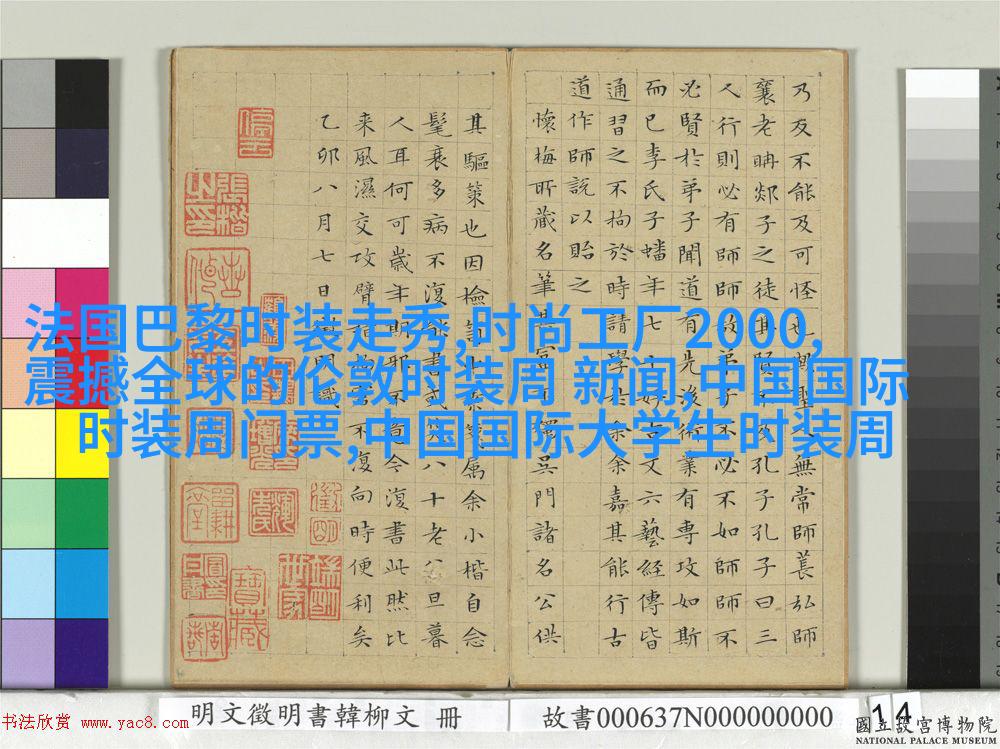 法国巴黎时装走秀,时尚工厂2000,
震撼全球的伦敦时装周 新闻,中国国际
时装周门票,中国国际大学生时装周
乃反不能及可怪也聖無常師萇弘師
襄老聃郯子之徒其賢不及孔子孔子曰三
人行則必有師師故弟子不必不如師師不
必賢於弟子聞道有先後術業有專攻如斯
而已李氏子蟠年七好古文六藝經傳皆
通習之不拘於時請學於余余嘉其能行古
道作師說以貽之
懷梅所藏名筆甚富吳門諸名公供
其驅策也因檢屬余小楷自念
髦衰多病不復能書八十老公旦暮
人耳何可歲年期邪不意今復書此然比
来風濕交攻臂指不復向時便利矣
乙卯八月七日徵明識
明文徵明書韓柳文 冊
故書000637N000000000
14
國立故宮博物院
NATIONAL PALACE MUSEUM
书法欣赏 www.yac8.com